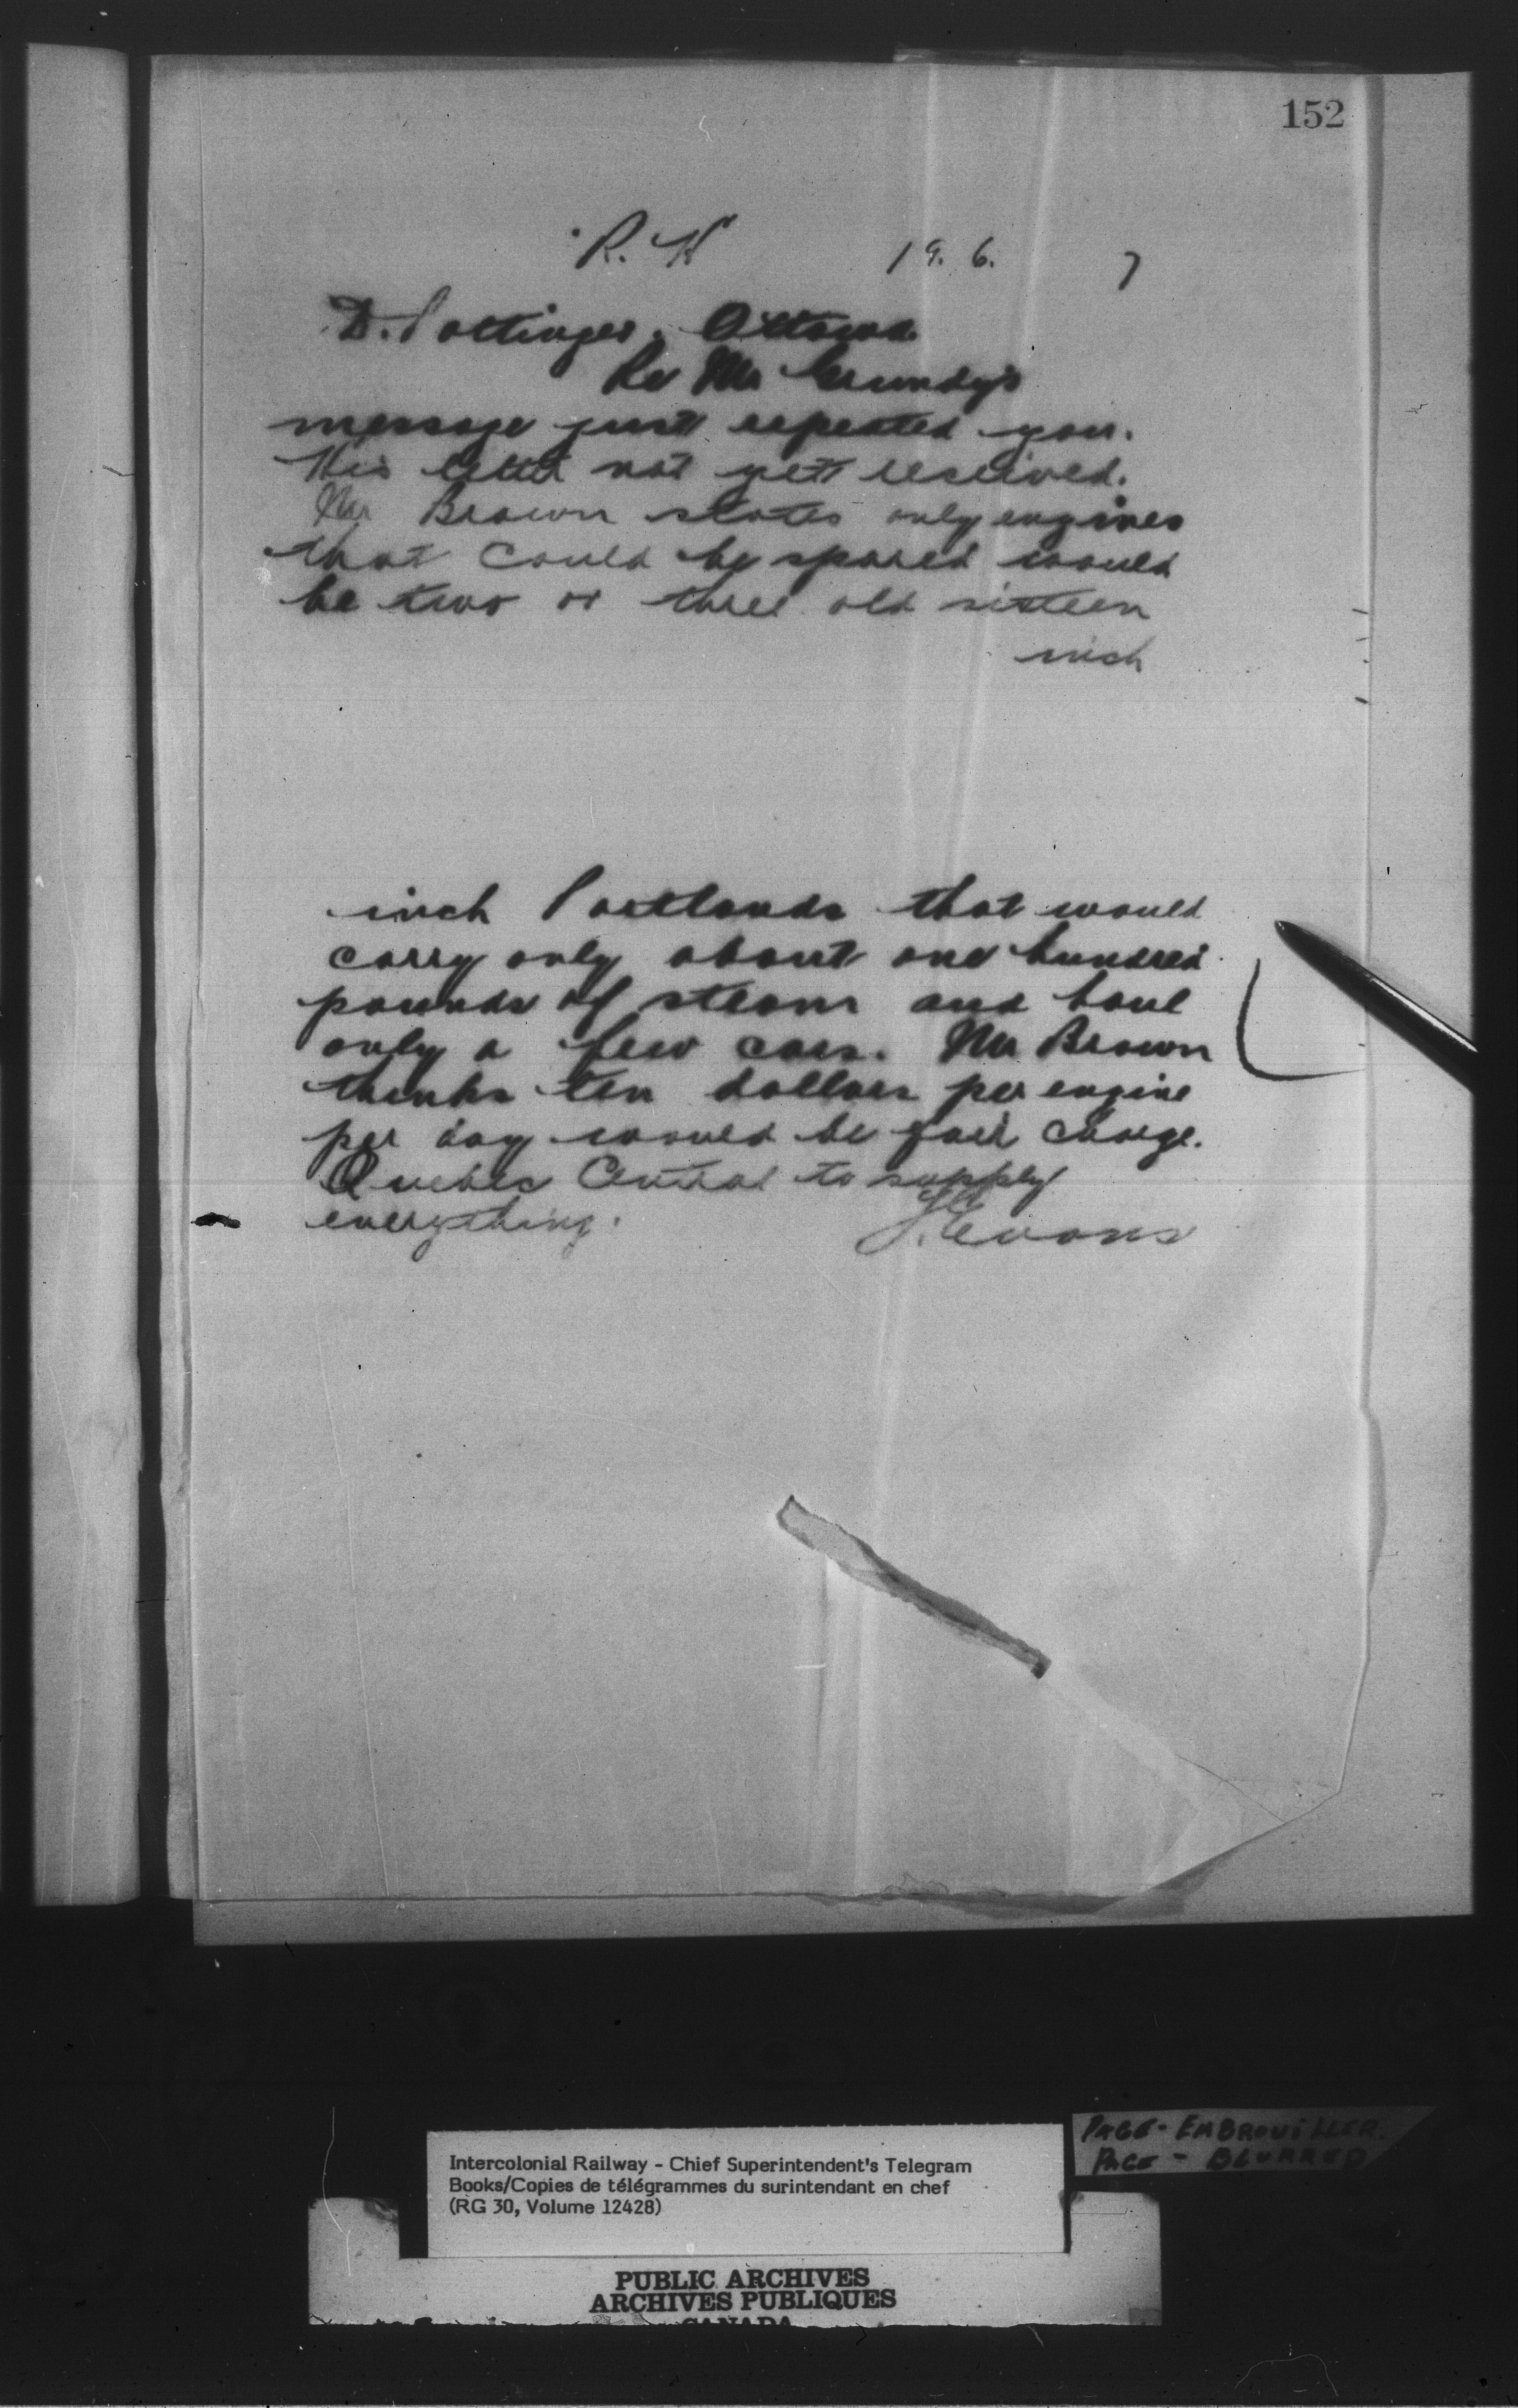 152
R. W 19. 6. 7
D. Pottinger. Ottawa
Re Mr Grundy's
message just repeated you.
His letter not yet received.
Mr Brown states only engines
that could be spared would
be two or three old sixteen
inch
inch Portlands that would
carry only about one hundred
pounds of steam and haul
only a few cars. Mr Brown
thinks ten dollars per engine
per day would be fair charge.
Quebec Central to supply
everything.
Evans
PAGE - EMBROUILLER.
PAGE - BLURRED
Intercolonial Railway - Chief Superintendent's Telegram
Books/Copies de télégrammes du surintendant en chef
(RG 30, Volume 12428)
PUBLIC ARCHIVES
ARCHIVES PUBLIQUES
CANADA